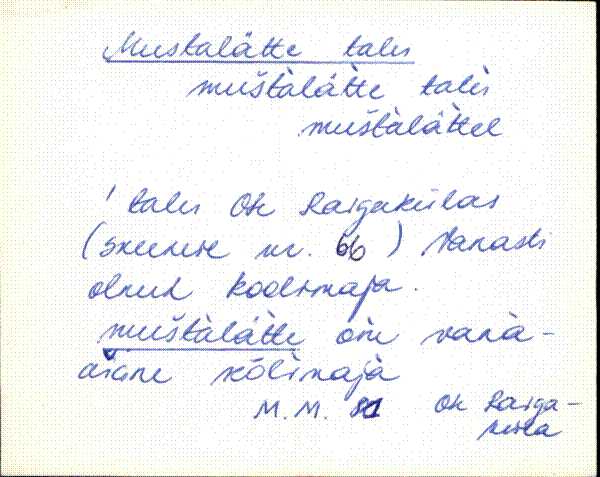 Mustalätte talu
muštàlätte talù
muštàlättel
talu Ote Raigakülas
(skeemil nr. 66) Vanasti
olnud koolimaja.
muštàlätte om vanà-
aiàne kôlìmajà
M.M. 81 Ote Raiga-
küla